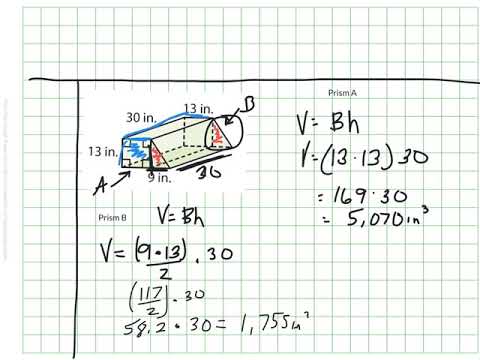 Prism A
13 in.
30 in.
B
13 in.
A
9 in.
30
V = Bh
V = (13 · 13) 30
= 169 · 30
= 5,070 in³
Prism B
V = Bh
V = (9 · 13)/2 · 30
(117/2) · 30
58.2 · 30 = 1,755 in³